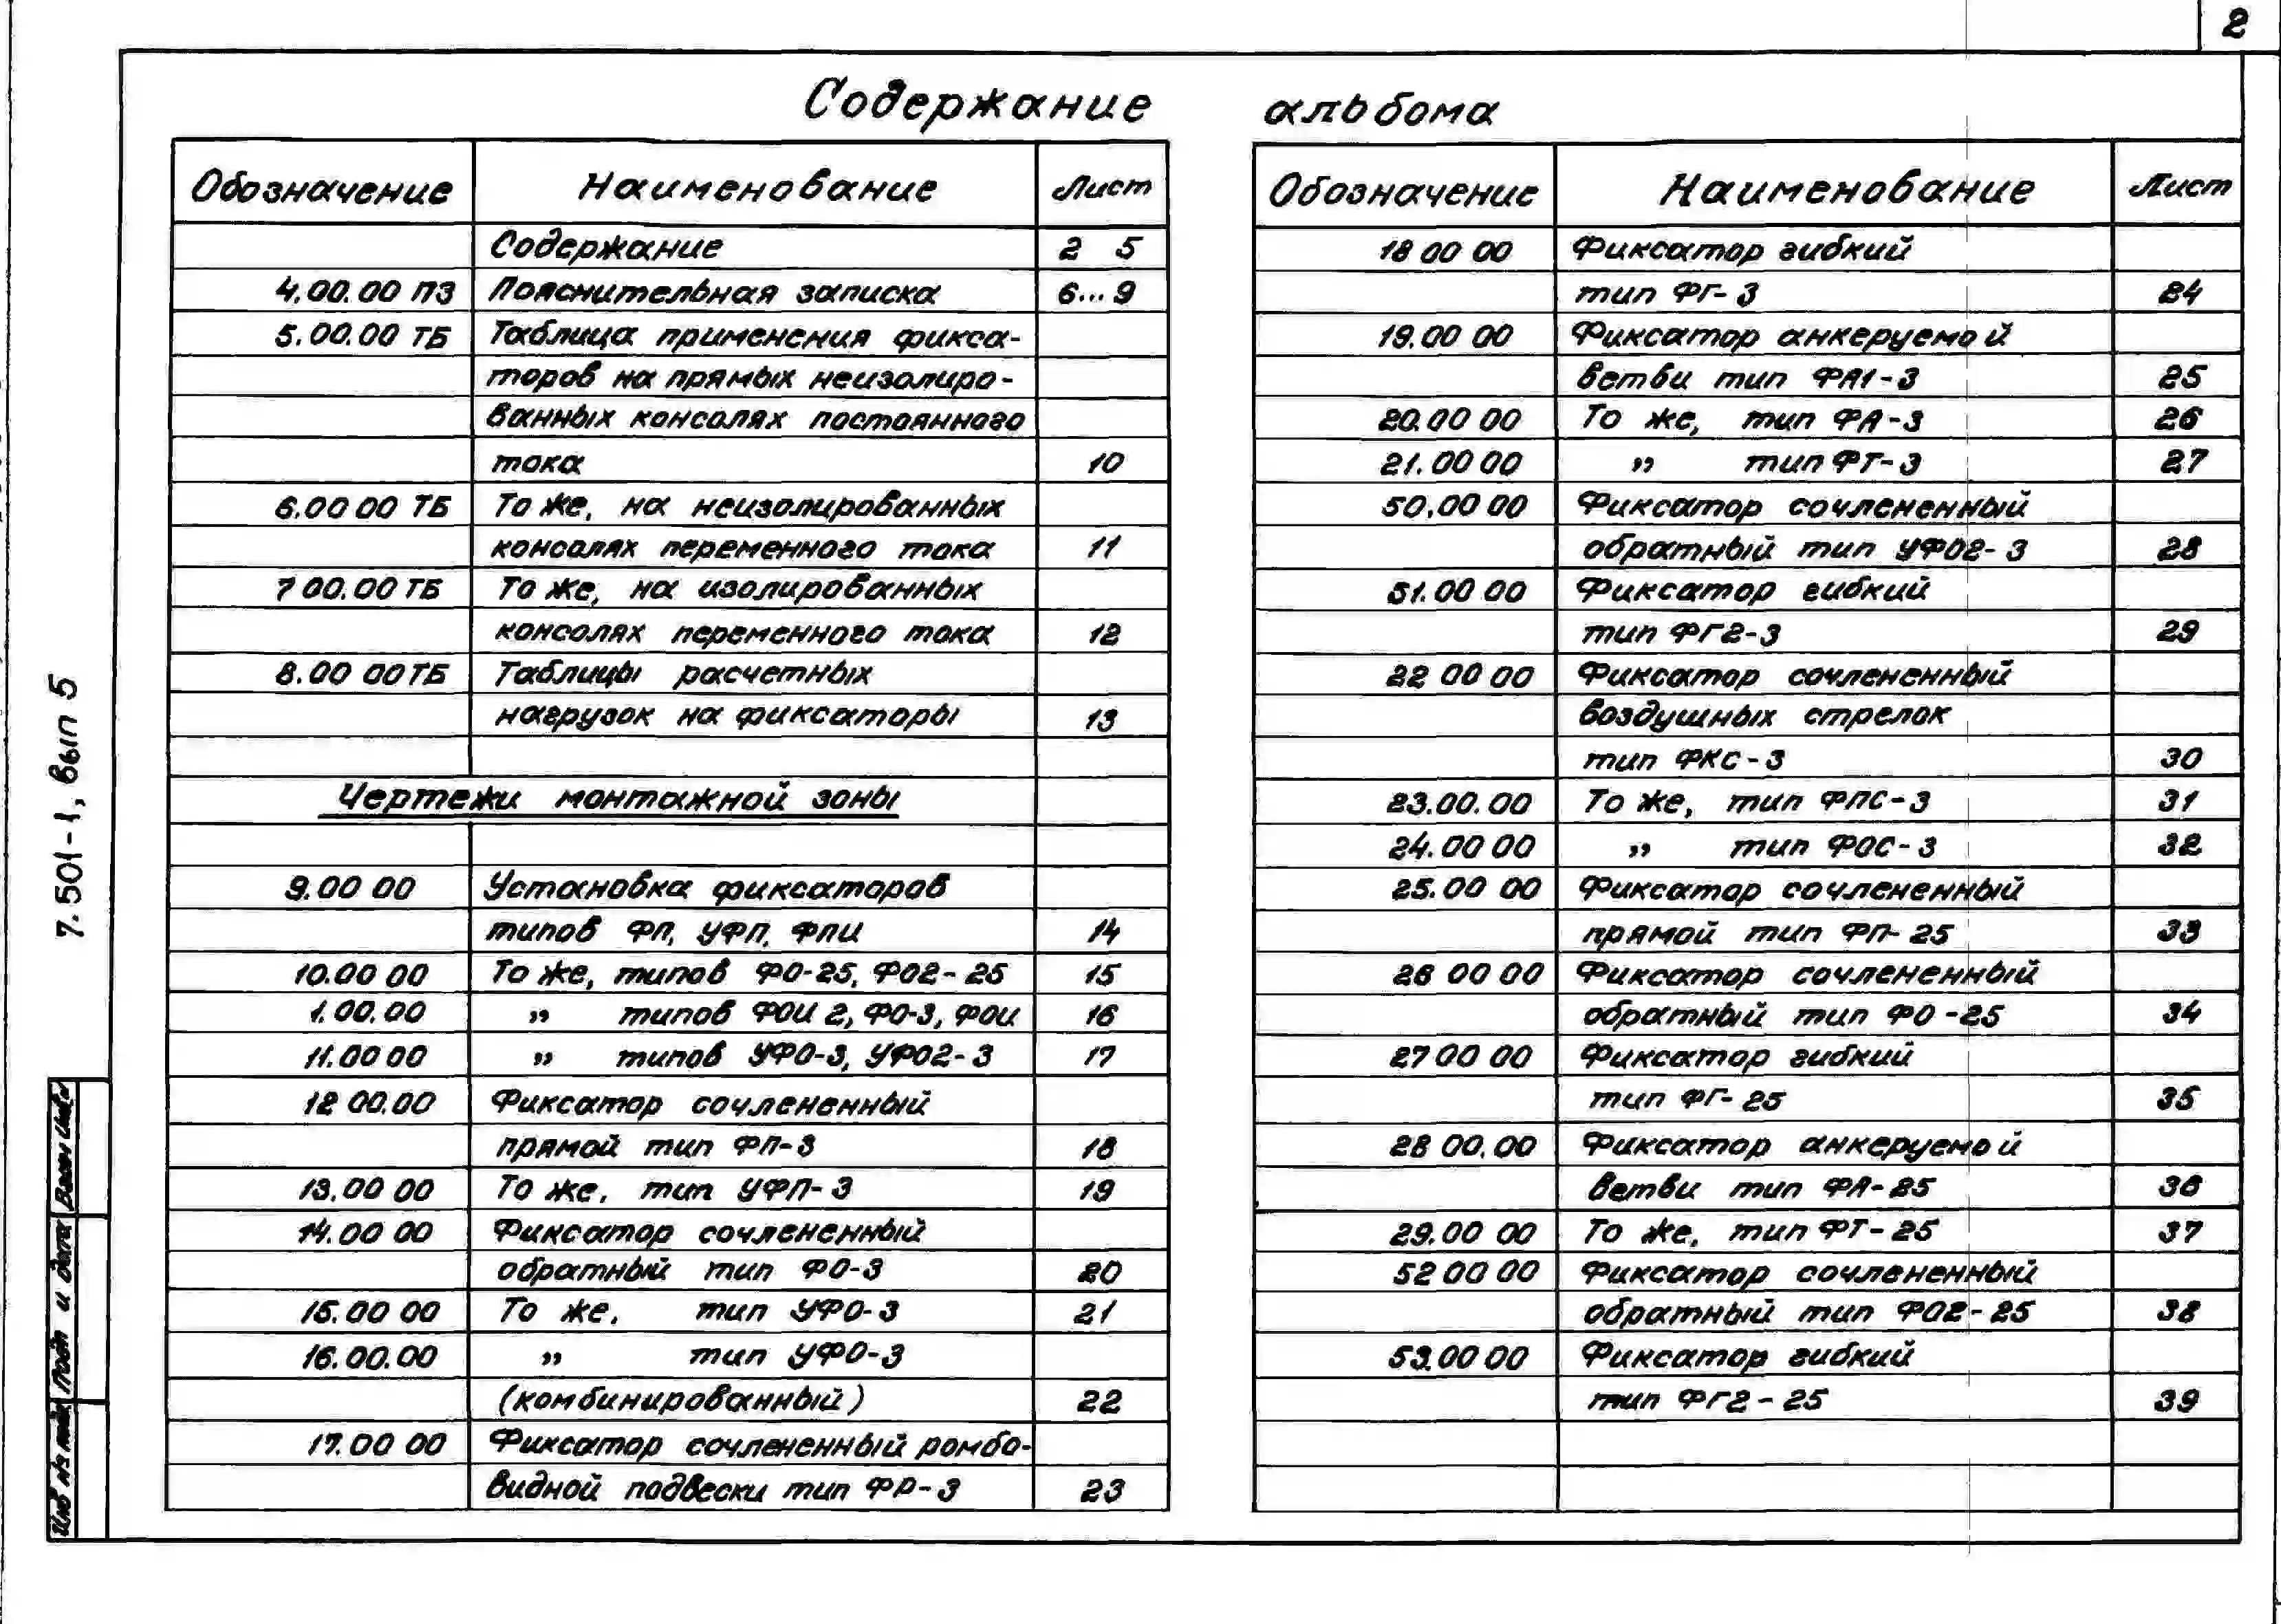 2
Содержание альбома
Обозначение Наименование Лист
Содержание 2 5
4.00.00 ПЗ Пояснительная записка 6...9
5.00.00 ТБ Таблица применения фикса-
торов на прямых неизолиро-
ванных консолях постоянного
тока 10
6.00 00 ТБ То же, на неизолированных
консолях переменного тока 11
7 00.00 ТБ То же, на изолированных
консолях переменного тока 12
8.00 00 ТБ Таблицы расчетных
нагрузок на фиксаторы 13
Чертежи монтажной зоны
9.00 00 Установка фиксаторов
типов ФП, УФП, ФПИ 14
10.00 00 То же, типов ФО-25, ФО2-25 15
1.00.00 " типов ФОИ 2, ФО-3, ФОИ 16
11.00 00 " типов УФО-3, УФО2-3 17
12 00.00 Фиксатор сочлененный
прямой тип ФП-3 18
13.00 00 То же, тип УФП-3 19
14.00 00 Фиксатор сочлененный
обратный тип ФО-3 20
15.00 00 То же, тип УФО-3 21
16.00.00 " тип УФО-3
(комбинированный) 22
17.00 00 Фиксатор сочлененный ромбо-
видной подвески тип ФР-3 23
Обозначение Наименование Лист
18 00 00 Фиксатор гибкий
тип ФГ-3 24
19.00 00 Фиксатор анкеруемой
ветви тип ФА1-3 25
20.00 00 То же, тип ФА-3 26
21.00 00 " тип ФТ-3 27
50.00 00 Фиксатор сочлененный
обратный тип УФО2-3 28
51.00 00 Фиксатор гибкий
тип ФГ2-3 29
22 00 00 Фиксатор сочлененный
воздушных стрелок
тип ФКС-3 30
23.00.00 То же, тип ФПС-3 31
24.00 00 " тип ФОС-3 32
25.00 00 Фиксатор сочлененный
прямой тип ФП-25 33
26 00 00 Фиксатор сочлененный
обратный тип ФО-25 34
27 00 00 Фиксатор гибкий
тип ФГ-25 35
28 00.00 Фиксатор анкеруемой
ветви тип ФА-25 36
29.00 00 То же, тип ФТ-25 37
52 00 00 Фиксатор сочлененный
обратный тип ФО2-25 38
53.00 00 Фиксатор гибкий
тип ФГ2-25 39
7.501-1, вып 5
Взам инв
Подп и дата
Инв № подл